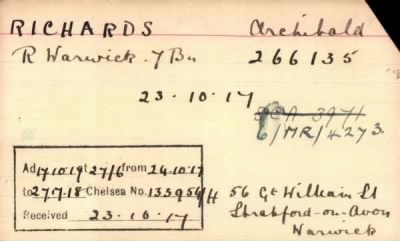 RICHARDS Archibald
R Warwick. 7 Bn 266135
23.10.17
SCA 3971
6/MR/4273.
Ad 17.10.19 at 27/6 from 24.10.17
to 27.7.18 Chelsea No. 135956/H
Received 23.10.17
56 Gt William St
Stratford-on-Avon
Warwick